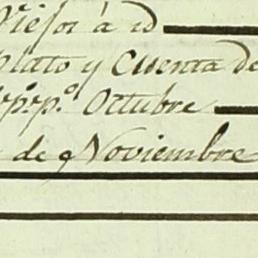 Viejos á id
Plato y Cuenta de
p.r p.o Octubre
de Noviembre